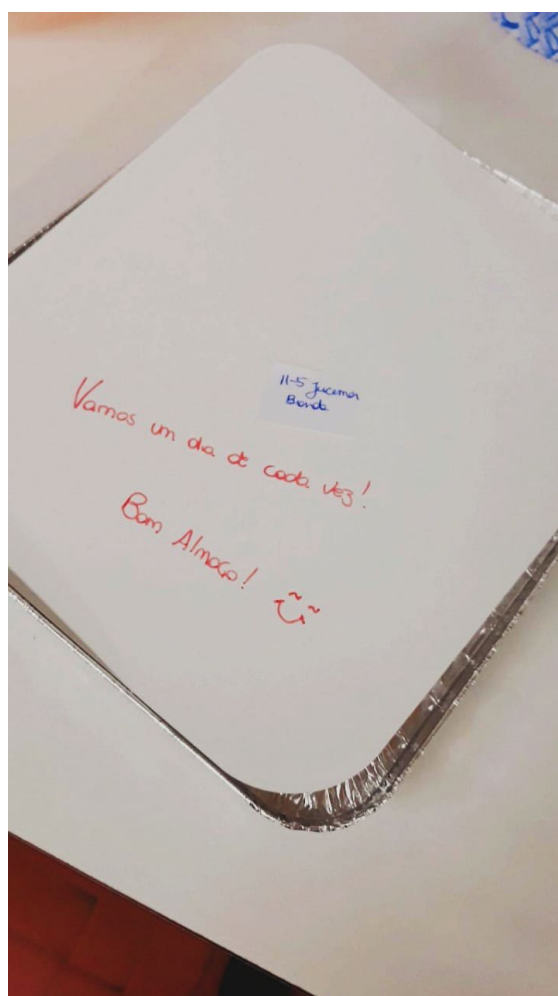 11-5 Jucemar
Branda
Vamos um dia de cada vez!
Bom Almoço!